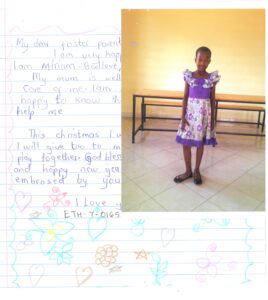 My dear foster parent
I am very happ
I am Miriam
My mum is well
Care of me. I am
happy to know th
help me
This christmas I w
I will give too to m
play together. God bless
and happy new yea
embrased by you
I Love y
ETH-Y-0165